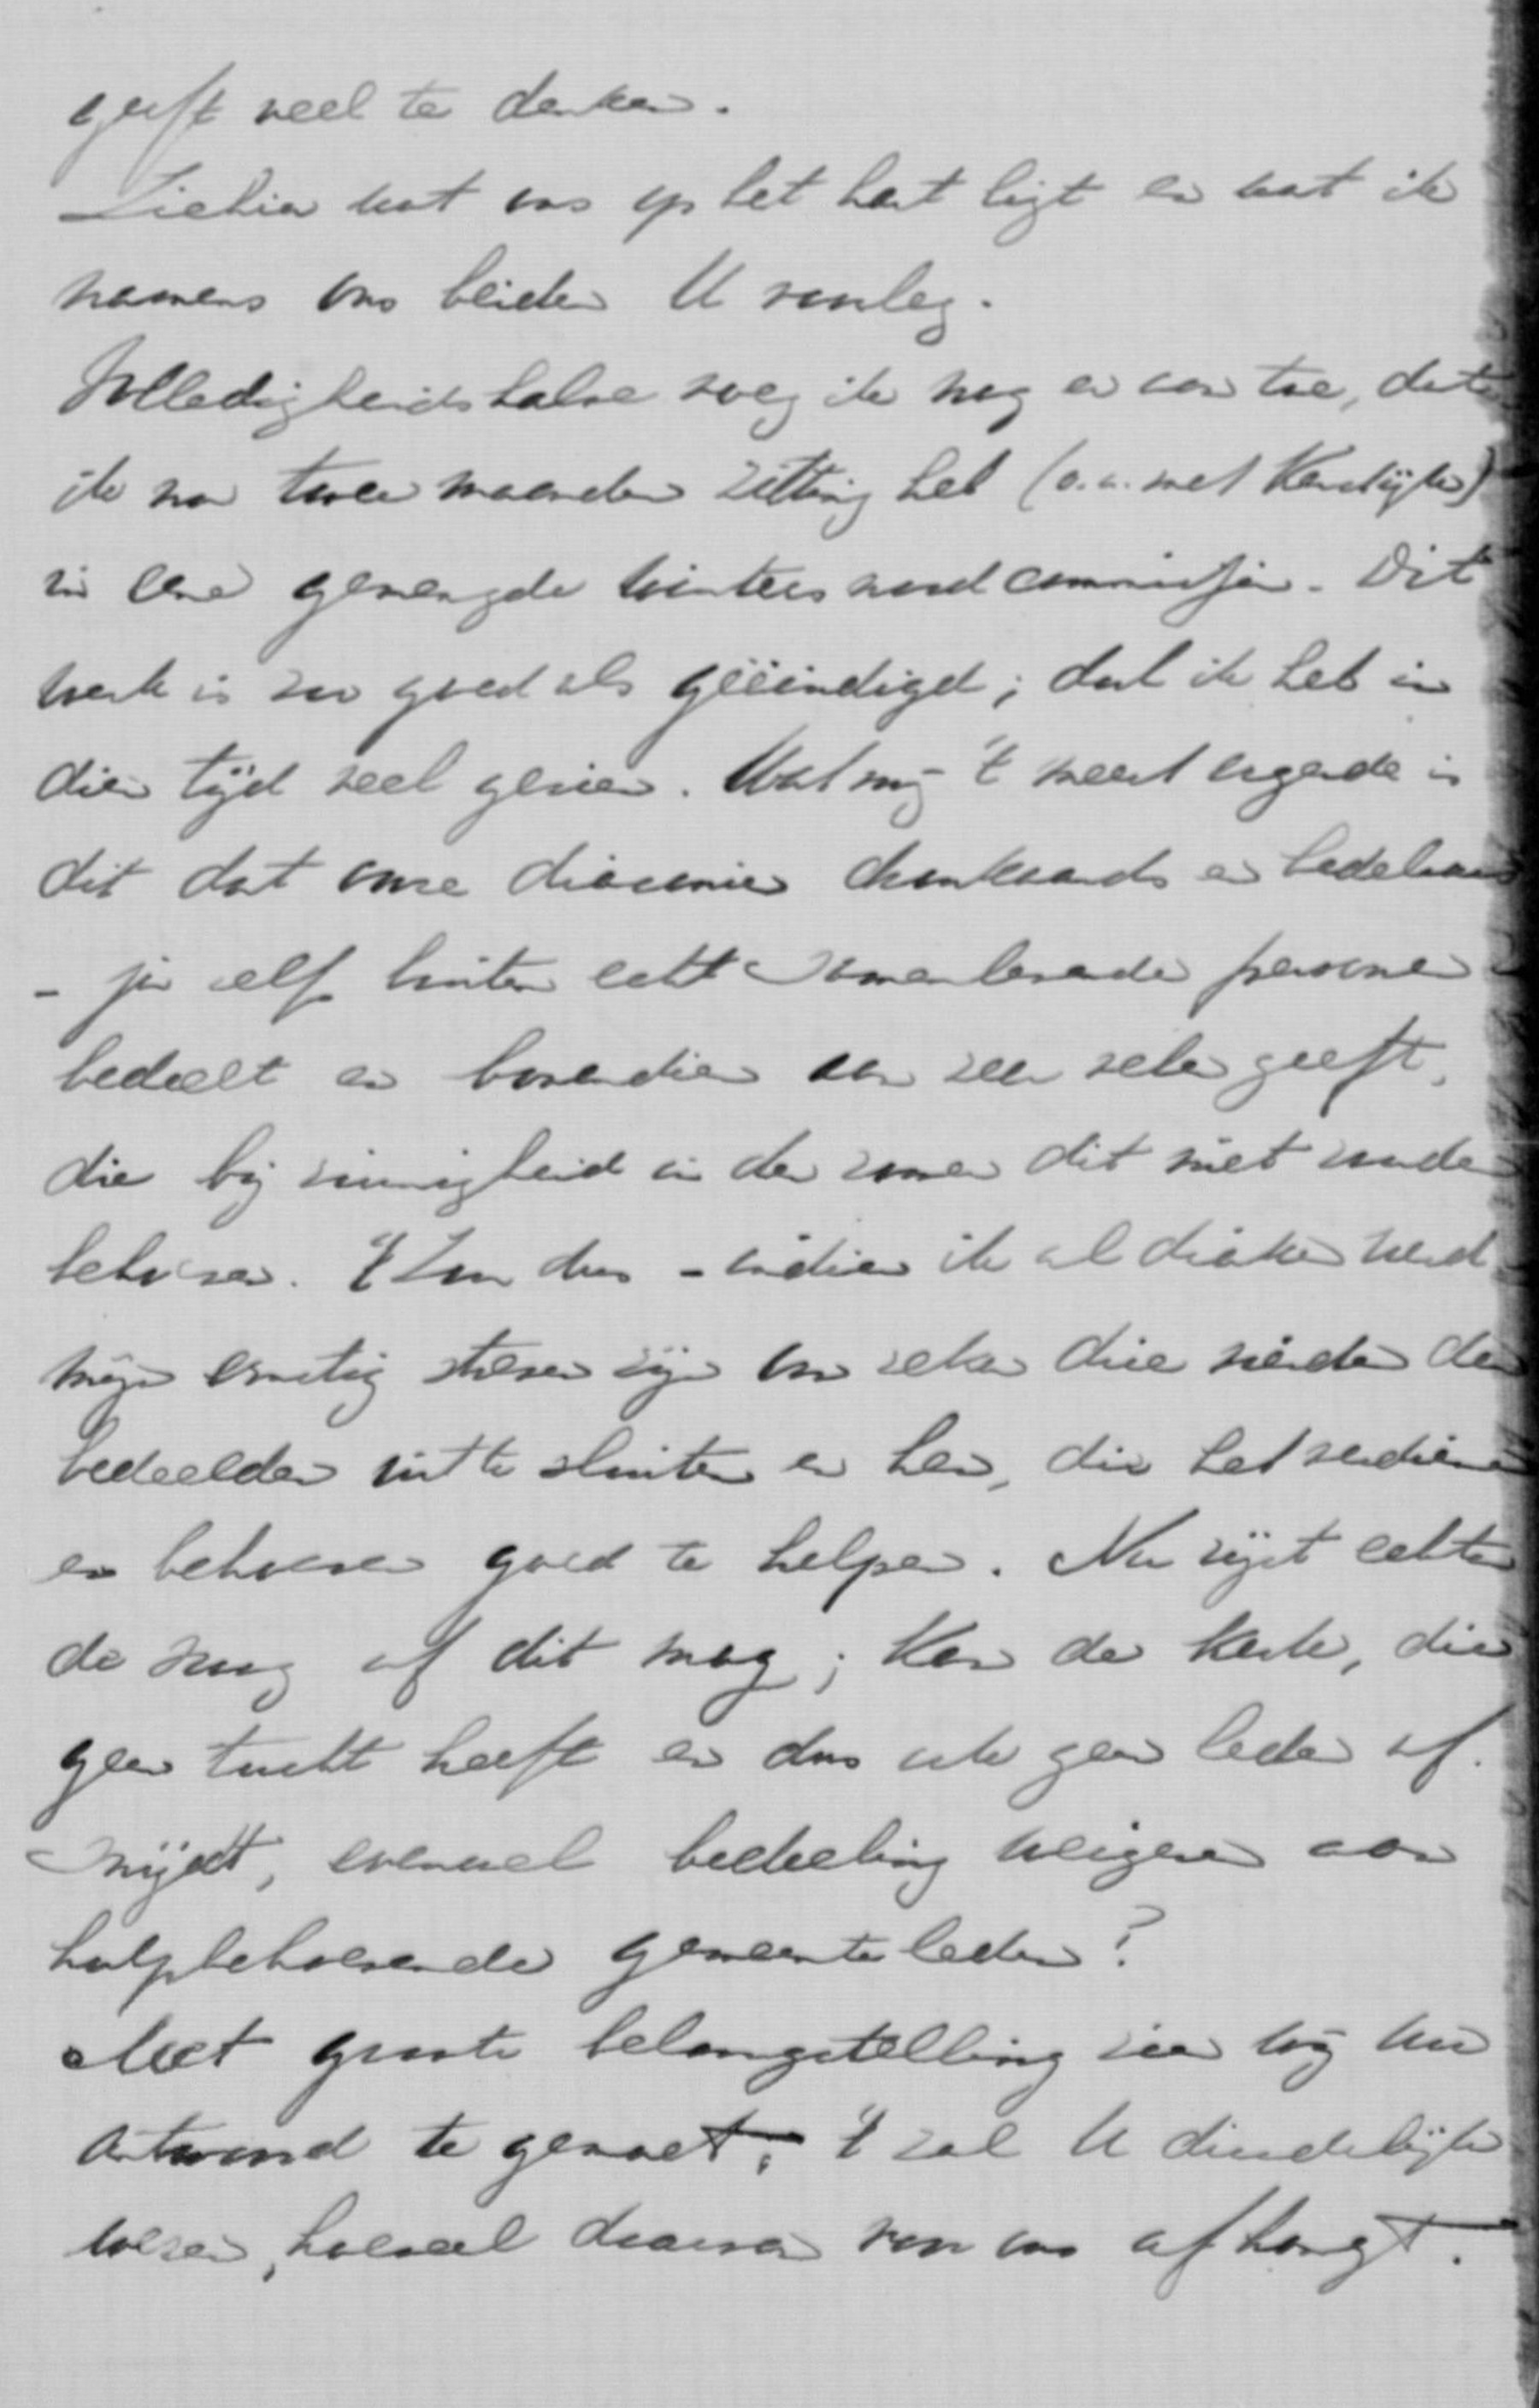 geeft veel te denken.
Ziehier wat ons op het hart ligt en wat ik
namens ons beiden U voorleg.
Volledigheidshalve voeg ik nog er aan toe, dat
ik nu twee maanden zitting heb (o.a. met Kerdijk)
in eene gemengde wintersnoodcommissie. Dit
werk is zoo goed als geëindigd; doch ik heb in
dien tijd veel gezien. Wat mij 't meest ergerde is
dit dat onze diaconie dronkaards en bedelaars
- ja zelfs buiten echt samenlevende personen -
bedeelt en bovendien aan zeer velen geeft,
die bij zuinigheid in den zomer dit niet zouden
behoeven. 't Zou dus - indien ik al diaken werd
mijn ernstig streven zijn om zeker drie vierden der
bedeelden uit te sluiten en hen, die het verdienen
en behoeven goed te helpen. Nu rijst echter
de vraag of dit mag; kan de kerk, die
geen tucht heeft en dus ook geen leden af-
snijdt, evenwel bedeeling weigeren aan
hulpbehoevende gemeenteleden?
Met groote belangstelling zien wij uw
antwoord te gemoet; 't zal U duidelijk
wezen, hoeveel daarvan voor ons afhangt.